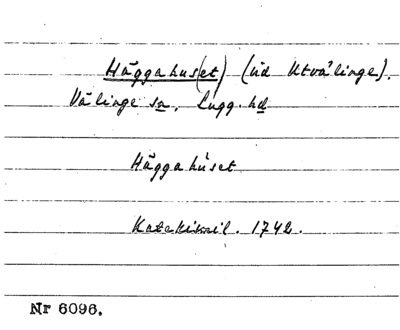 Häggahus(et) (vid Utvälinge).
Välinge sn. Lugg. hd
Häggahuset
Katekismil. 1742.
Nr 6096.